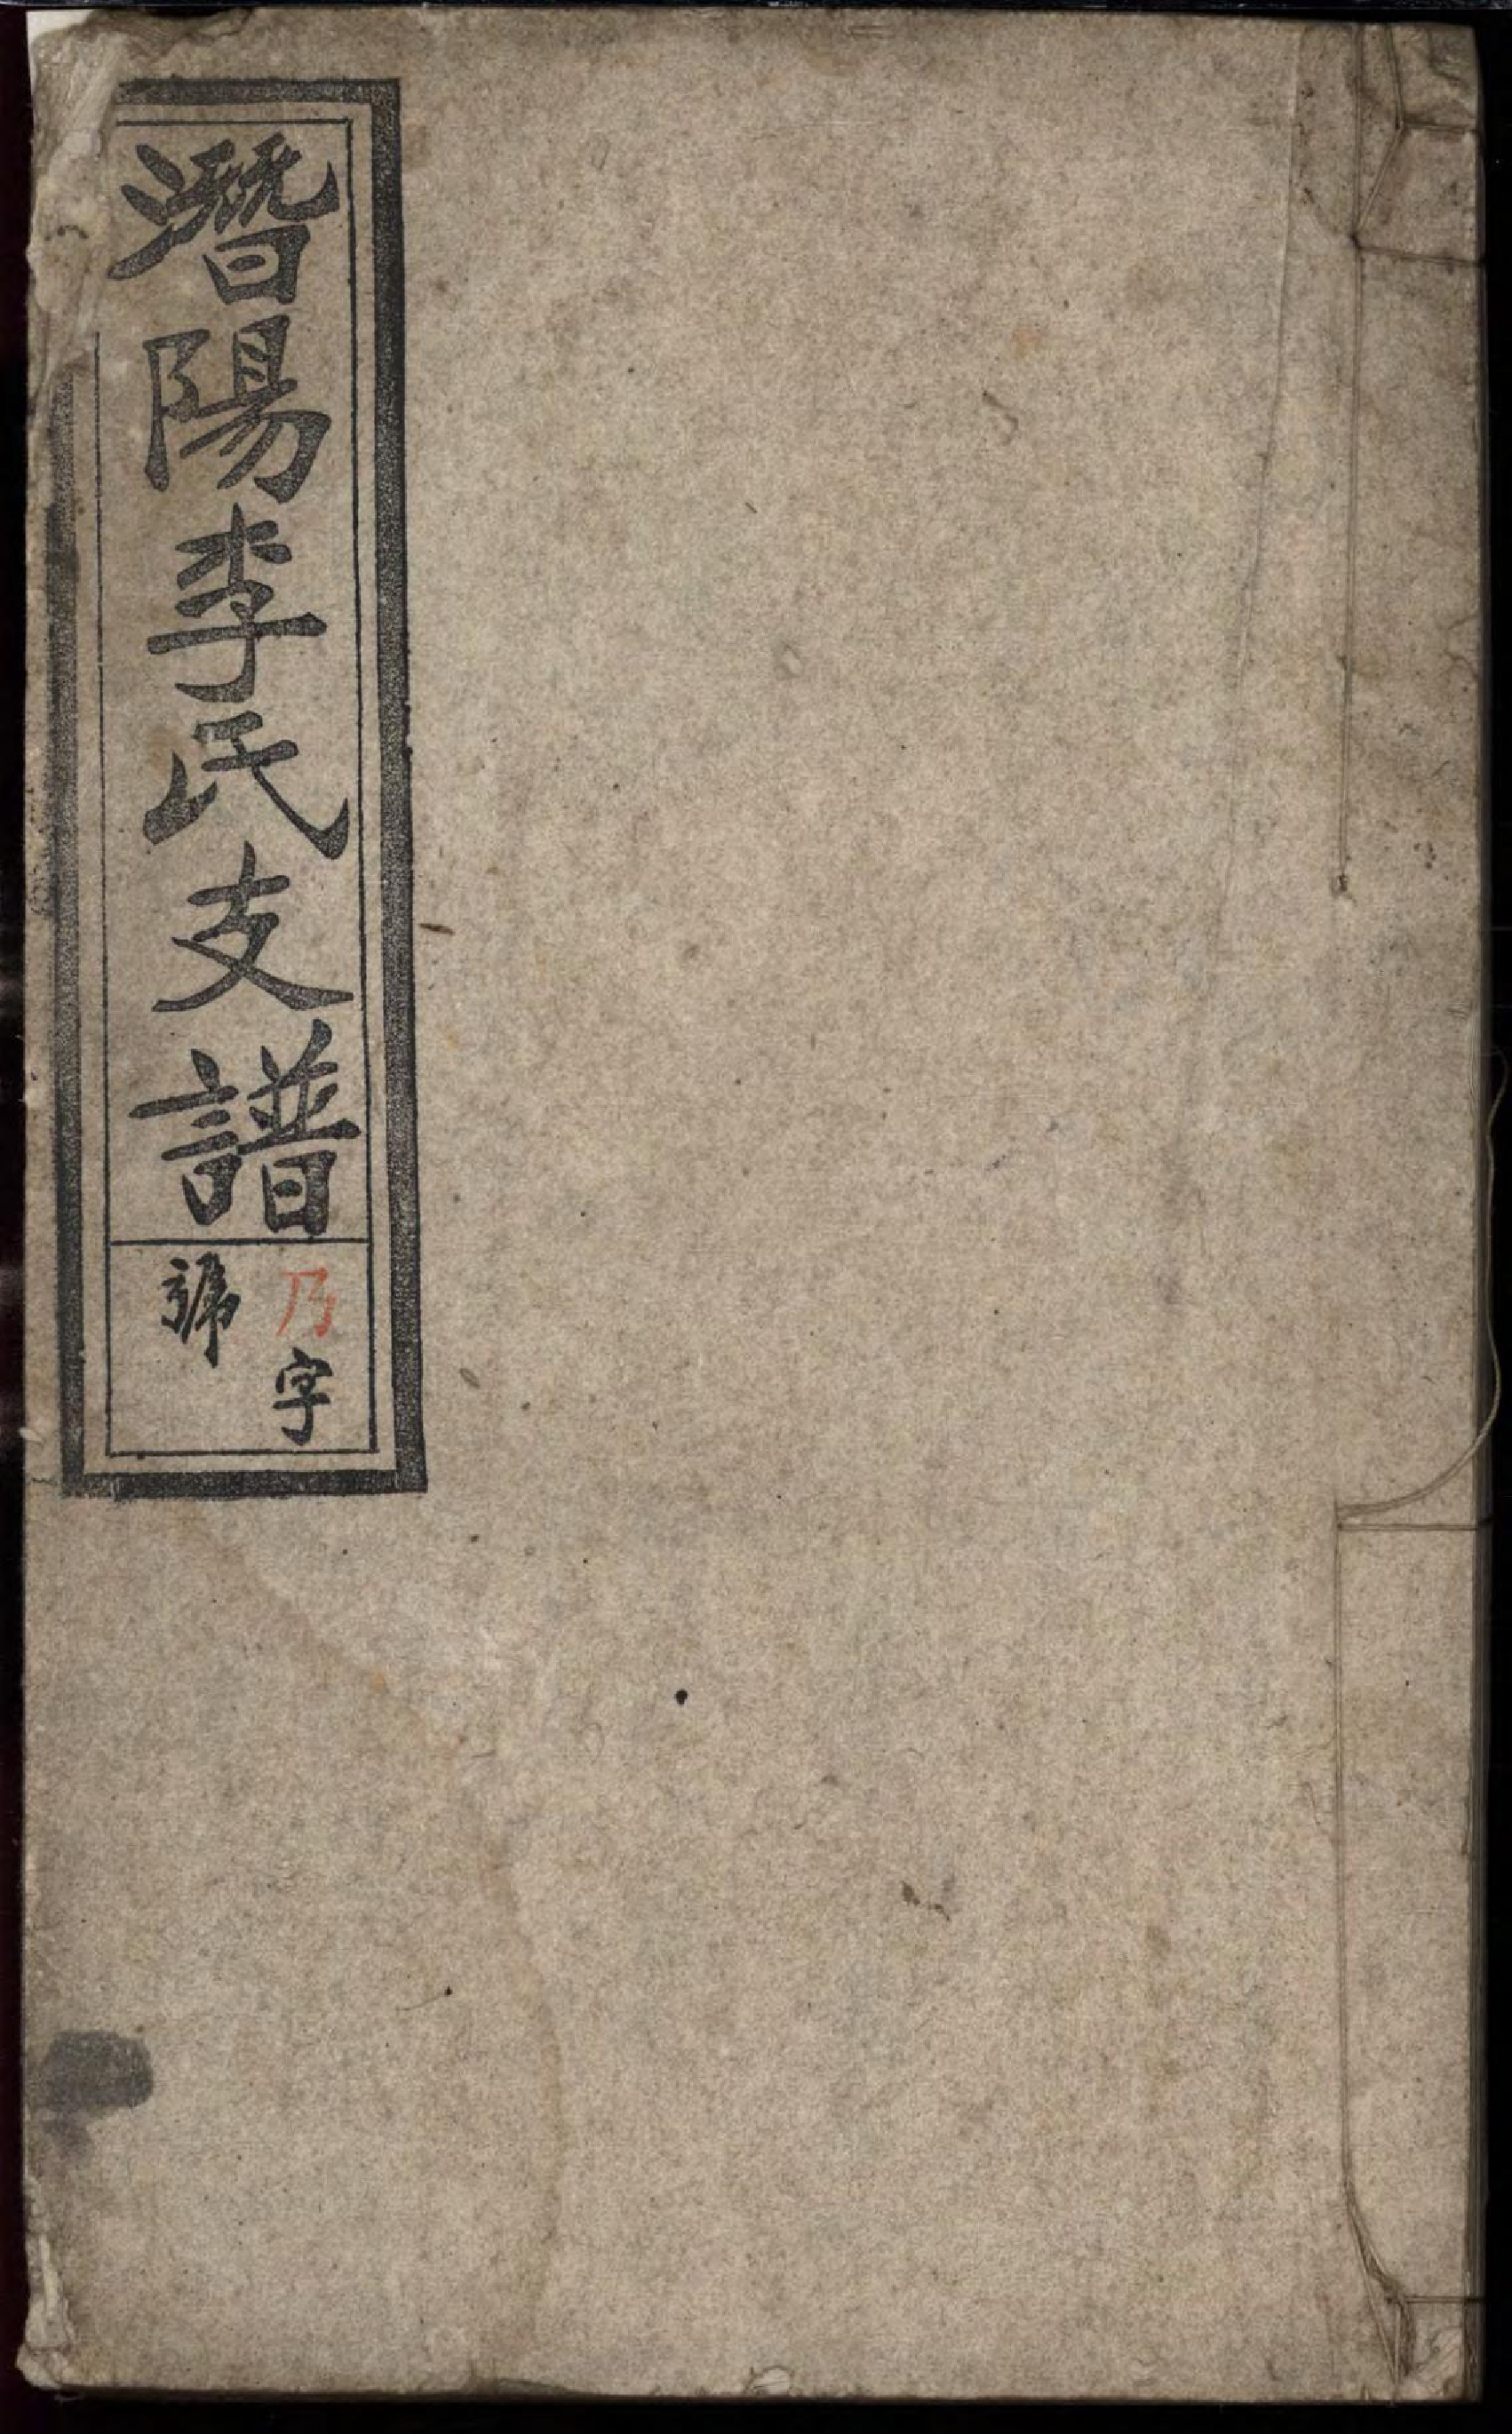 潛陽李氏支譜
乃字
號